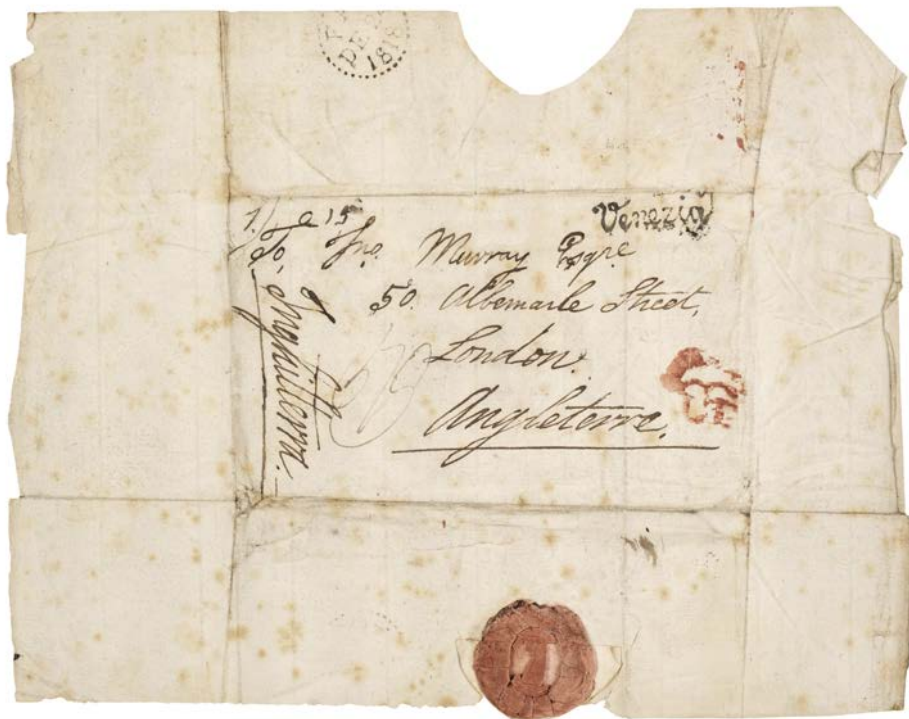 DE
1818
Venezia
To, Jno. Murray Esqre
50. Albemarle Street,
London.
Angleterre.
Inghilterra.